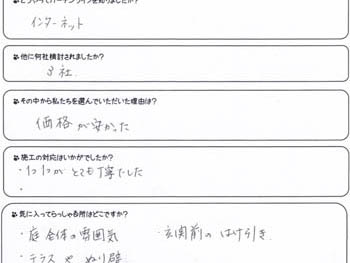 どうやってガーデンラインを知りましたか?
インターネット
他に何社検討されましたか?
3社
その中から私たちを選んでいただいた理由は?
価格が安かった
施工の対応はいかがでしたか?
・1つ1つがとても丁寧でした
・
気に入ってらっしゃる所はどこですか?
・庭全体の雰囲気 ・玄関前のはけ引き
・テラスやぬり壁